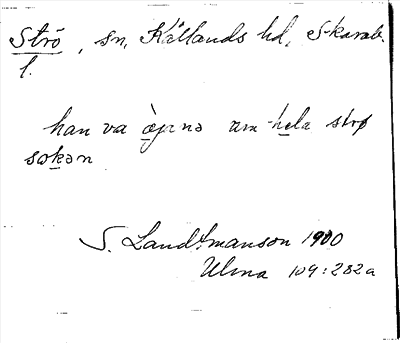 Strö, sn, Kållands hd, Skarab.
l.
han va  am hela strø
sokən
S. Landtmanson 1900
Ulma 109:282a